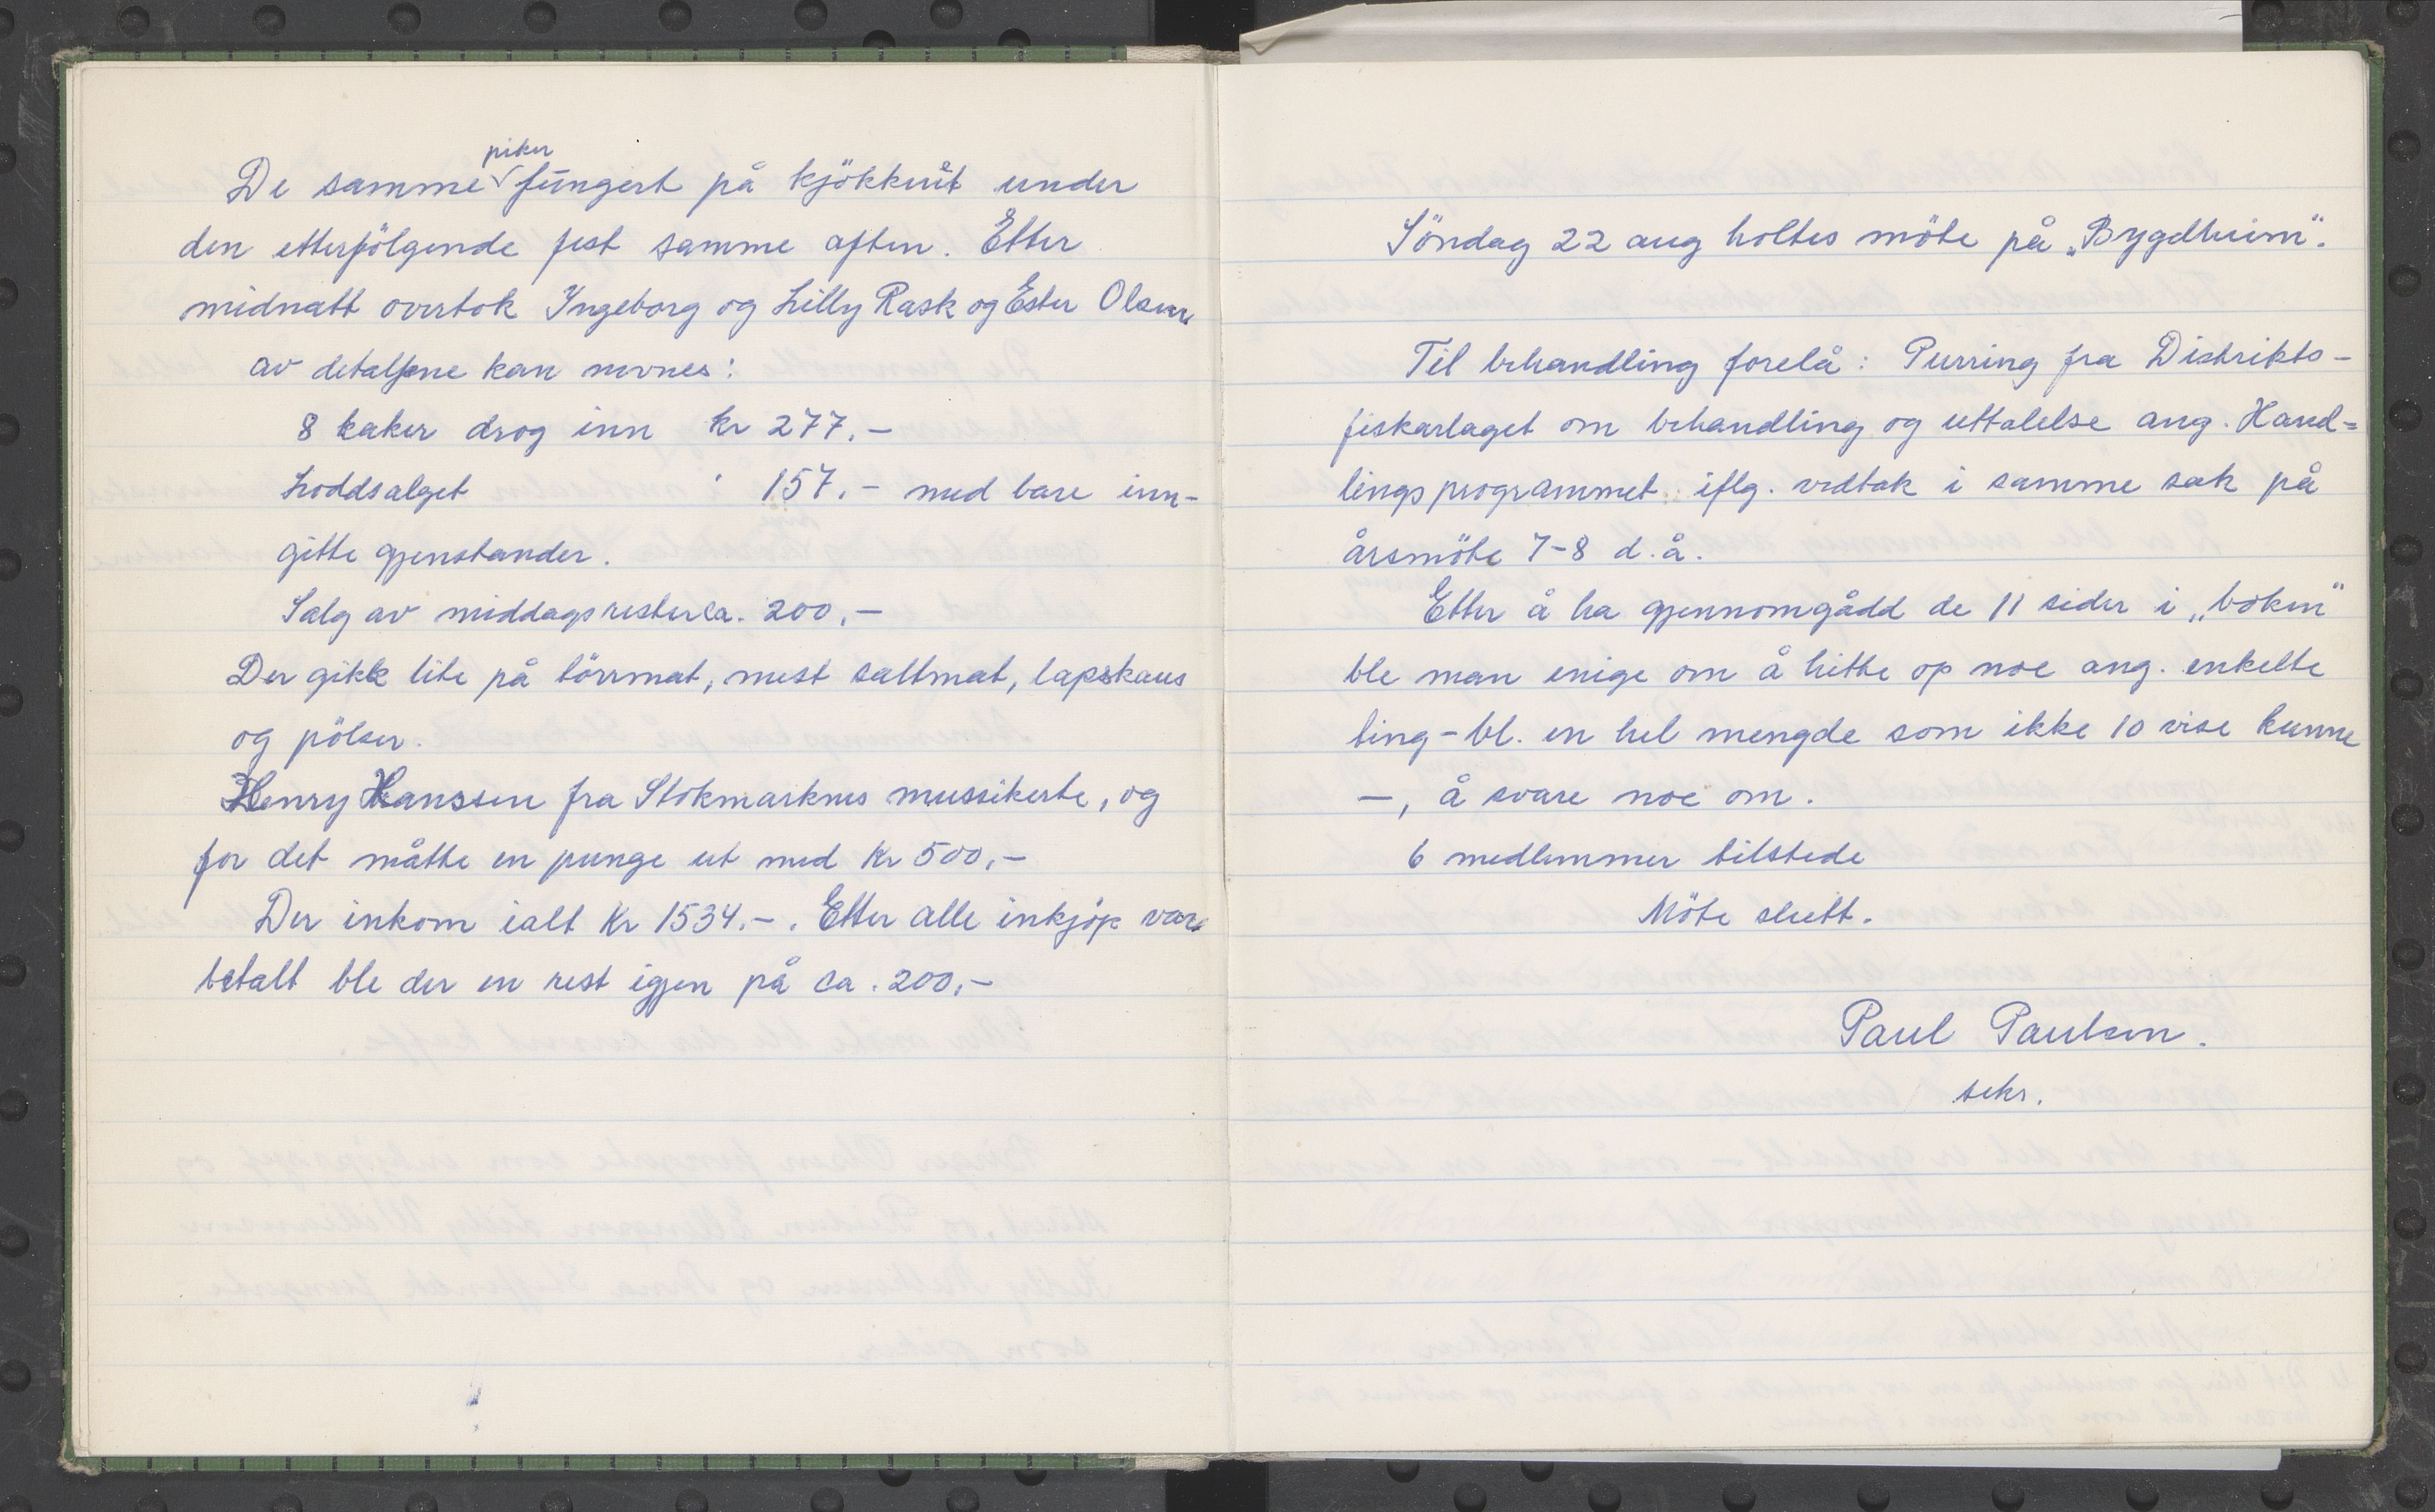 De samme piker fungert på kjökkent under
den etterfölgende fest samme aften. Etter
midnatt overtok Ingeborg og Lilly Rask og Ester Olsen
av detaljene kan nevnes:
8 kaker drog inn kr 277.-
Loddsalget " 157.- med bare inn-
gitte gjenstander.
Salg av middagsrester ca. 200.-
Der gikk lite på törrmat, mest saltmat, lapskaus
og pölser.
Henry Hanssen fra Stokmarknes mussikerte, og
for det måtte en punge ut med kr 500,-
Der inkom ialt kr 1534.-. Etter alle inkjöp var
betalt ble der en rest igjen på ca. 200,-
Söndag 22 aug holtes möte på „Bygdheim".
Til behandling forelå: Purring fra Distrikts-
fiskarlaget om behandling og uttalelse ang. Hand=
lingsprogrammet iflg. vedtak i samme sak på
årsmöte 7-8 d.å.
Etter å ha gjennomgådd de 11 sider i „boken"
ble man enige om å hitte op noe ang. enkelte
ting - bl. en hel mengde som ikke 10 vise kunne
-, å svare noe om.
6 medlemmer tilstede
Möte slutt.
Paul Paulsen.
sekr.